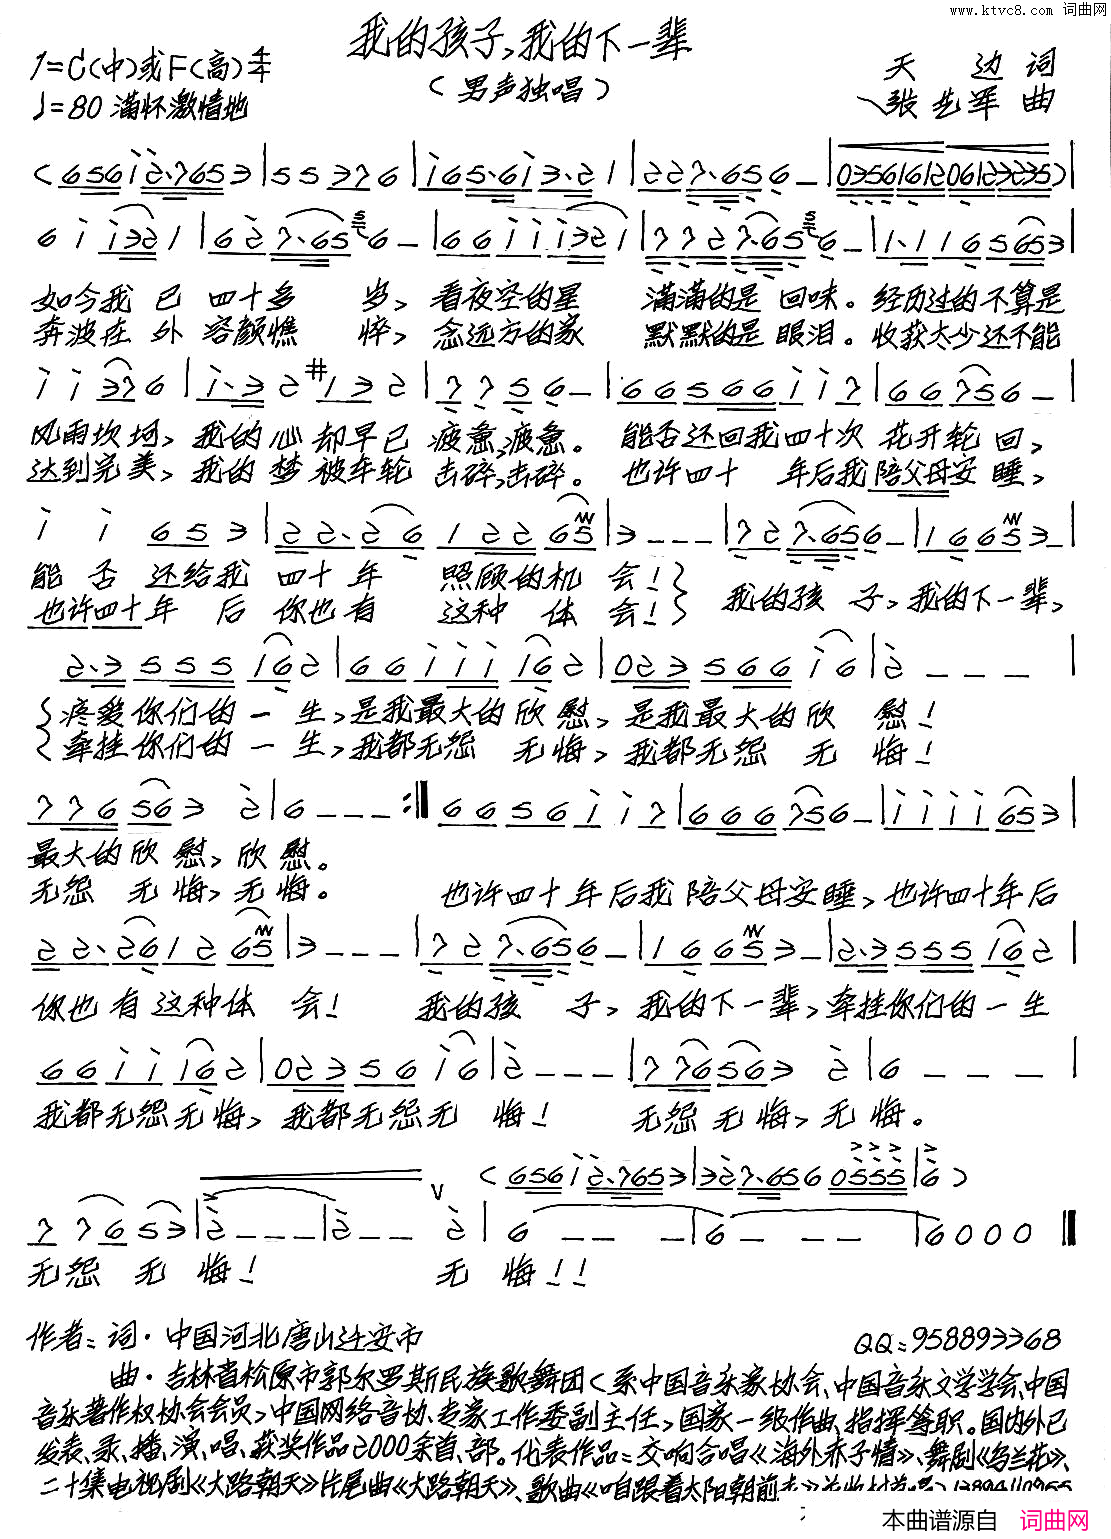 www.ktvc8.com 词曲网
我的孩子,我的下一辈
1=C(中)或F(高)4/4
(男声独唱)
天 边 词
♩=80 满怀激情地
张先军 曲
(656i2·7653|55376|i65·6i3·21|227·656-|035616120612323 5)|
6ii321|627·6566-|66iii321|7727·6566-|1·1165653|
如今我已四十多 岁,看夜空的星 满满的是回味。经历过的不算是
奔波在外容颜憔 悴,念远方的家 默默的是眼泪。收获太少还不能
ii376|i·32#132|7756-|66566ii7|66756-|
风雨坎坷,我的心却早已疲惫,疲惫。能否还回我四十次花开轮回,
达到完美,我的梦被车轮击碎,击碎。也许四十 年后我陪父母安睡,
ii653|22·2612265|3---|727·6566-|166653-|
能否还给我四十年 照顾的机会!} 我的孩 子,我的下一辈,
也许四十年后你也有 这种体会!
2·3555162|66iii162|023566i6|2---|
{疼爱你们的一生,是我最大的欣慰,是我最大的欣 慰!
牵挂你们的一生,我都无怨 无悔,我都无怨 无 悔!
7765632|6---:‖6656ii7|6667566-|iiii653|
最大的欣慰,欣慰。
无怨 无悔,无悔。 也许四十年后我陪父母安睡,也许四十年后
22·261265|3---|727·6566-|166653-|2·3555162|
你也有这种体 会! 我的孩 子,我的下一辈,牵挂你们的一生
66ii162|02356i6|2---|7765632|6---|
我都无怨无悔,我都无怨无 悔! 无怨无悔,无悔。
(656i2·7653|327·6560555|6)
77653|2---|2--- v 2|6---|6---|6000‖
无怨 无 悔! 无 悔!!
作者:词·中国河北唐山迁安市 QQ:958893368
曲·吉林省松原市郭尔罗斯民族歌舞团(系中国音乐家协会、中国音乐文学学会、中国
音乐著作权协会会员,中国网络音协、专家工作委副主任,国家一级作曲、指挥等职。国内外已
发表、录、播、演、唱、获奖作品2000余首、部。代表作品:交响合唱《海外赤子情》、舞剧《乌兰花》、
二十集电视剧《大路朝天》片尾曲《大路朝天》、歌曲《咱跟着太阳朝前
本曲谱源自 词曲网